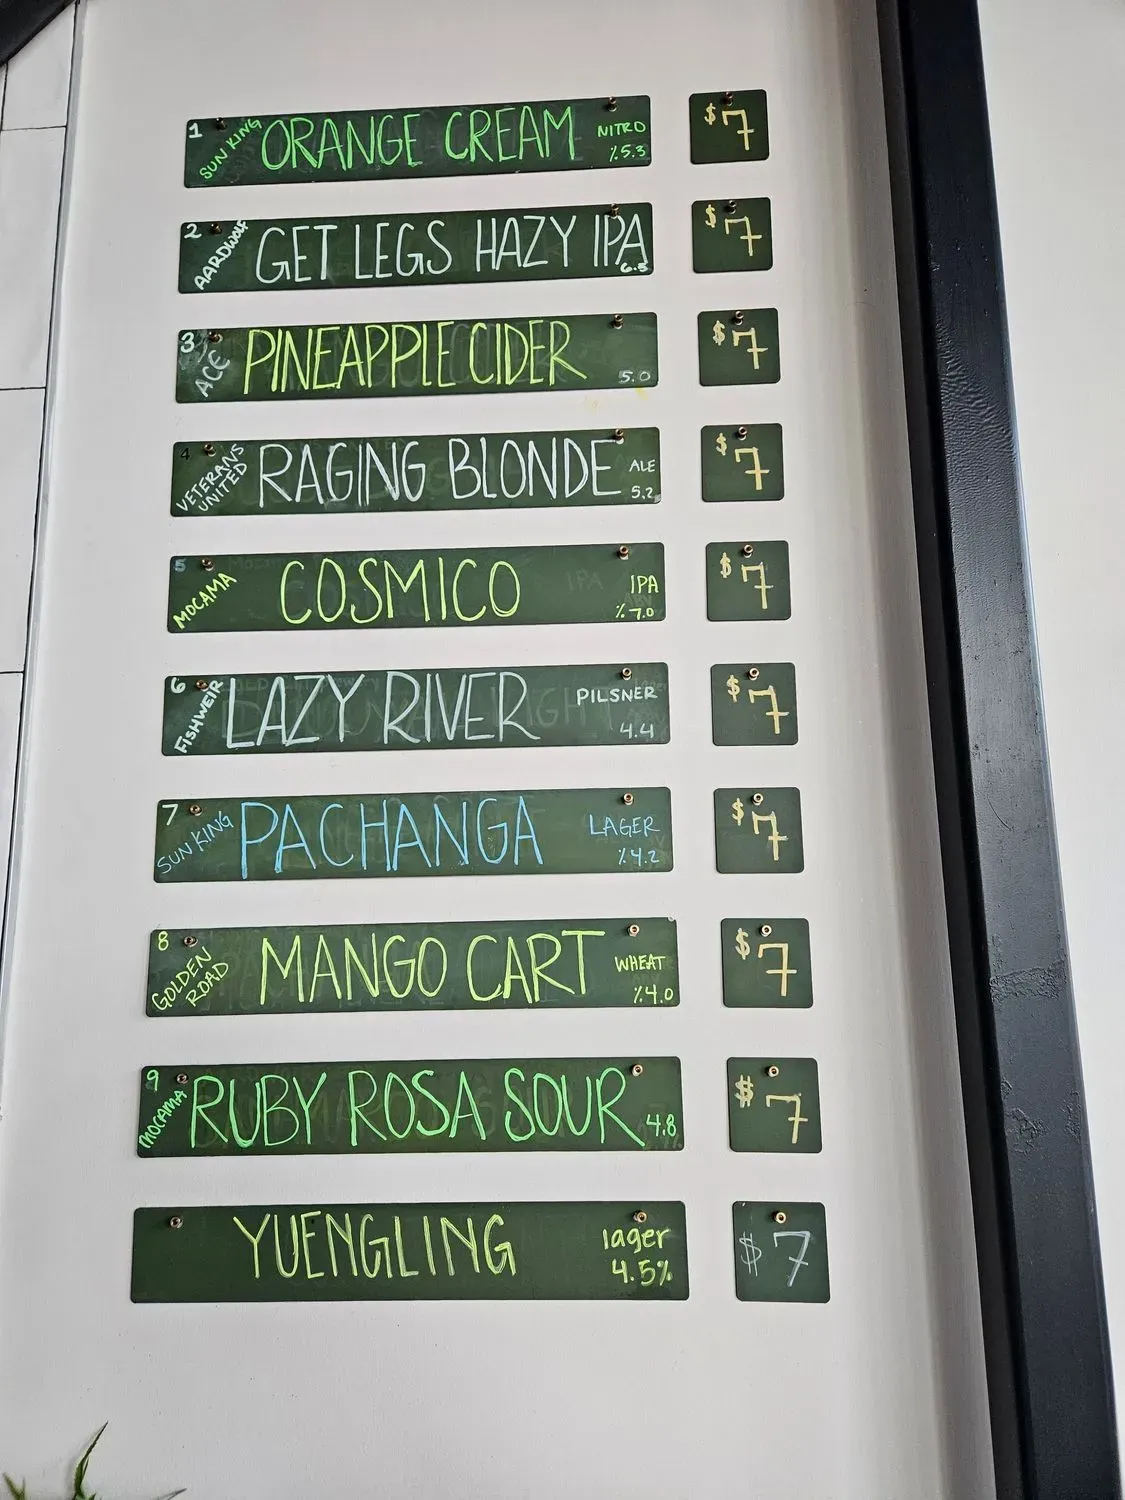 1 SUN KING ORANGE CREAM NITRO
%5.3
$7
2 AARDWOLF GET LEGS HAZY IPA
6.5
$7
3 ACE PINEAPPLE CIDER
5.0
$7
4 VETERANS UNITED RAGING BLONDE ALE
5.2
$7
5 MOCAMA COSMICO IPA
%7.0
$7
6 FISHWEIR LAZY RIVER PILSNER
4.4
$7
7 SUN KING PACHANGA LAGER
%4.2
$7
8 GOLDEN ROAD MANGO CART WHEAT
%4.0
$7
9 MOCAMA RUBY ROSA SOUR 4.8
$7
YUENGLING lager
4.5%
$7